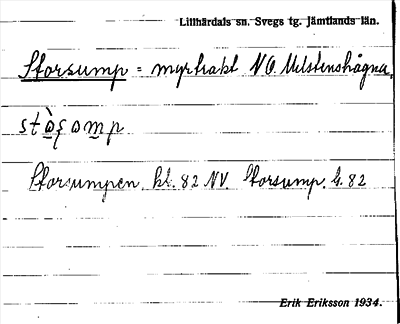 Lillhärdals sn. Svegs tg. Jämtlands län.
Storsump = myrtrakt NO. Ulvstenshågna.
stòsomp
Storsumpen. kl. 82 NV. Storsump. l. 82
Erik Eriksson 1934.